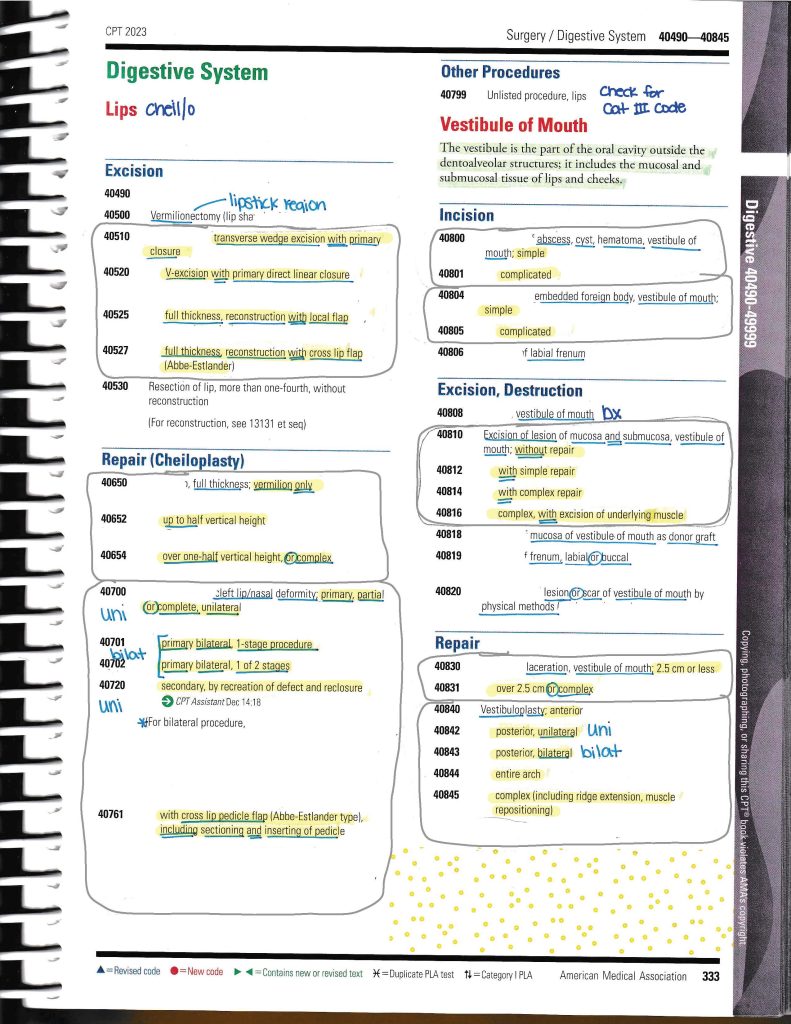 CPT 2023
Surgery / Digestive System 40490—40845
Digestive System
Lips cheil/o
Excision
40490
lipstick region
40500 Vermilionectomy (lip sha
40510 transverse wedge excision with primary
closure
40520 V-excision with primary direct linear closure
40525 full thickness, reconstruction with local flap
40527 full thickness, reconstruction with cross lip flap
(Abbe-Estlander)
40530 Resection of lip, more than one-fourth, without
reconstruction
(For reconstruction, see 13131 et seq)
Repair (Cheiloplasty)
40650 , full thickness; vermilion only
40652 up to half vertical height
40654 over one-half vertical height, or complex
40700 cleft lip/nasal deformity; primary, partial
uni or complete, unilateral
40701 primary bilateral, 1-stage procedure
bilat
40702 primary bilateral, 1 of 2 stages
40720 secondary, by recreation of defect and reclosure
uni CPT Assistant Dec 14:18
*For bilateral procedure,
40761 with cross lip pedicle flap (Abbe-Estlander type),
including sectioning and inserting of pedicle
Other Procedures
40799 Unlisted procedure, lips check for
Cat III code
Vestibule of Mouth
The vestibule is the part of the oral cavity outside the
dentoalveolar structures; it includes the mucosal and
submucosal tissue of lips and cheeks.
Incision
40800 abscess, cyst, hematoma, vestibule of
mouth; simple
40801 complicated
40804 embedded foreign body, vestibule of mouth;
simple
40805 complicated
40806 f labial frenum
Excision, Destruction
40808 vestibule of mouth bx
40810 Excision of lesion of mucosa and submucosa, vestibule of
mouth; without repair
40812 with simple repair
40814 with complex repair
40816 complex, with excision of underlying muscle
40818 mucosa of vestibule of mouth as donor graft
40819 f frenum, labial or buccal
40820 lesion or scar of vestibule of mouth by
physical methods
Repair
40830 laceration, vestibule of mouth; 2.5 cm or less
40831 over 2.5 cm or complex
40840 Vestibuloplasty; anterior
40842 posterior, unilateral uni
40843 posterior, bilateral bilat
40844 entire arch
40845 complex (including ridge extension, muscle
repositioning)
Digestive 40490-49999
Copying, photographing, or sharing this CPT® book violates AMA's copyright.
▲=Revised code ●=New code ▶ ◀=Contains new or revised text ⚹=Duplicate PLA test ⇅=Category I PLA American Medical Association 333